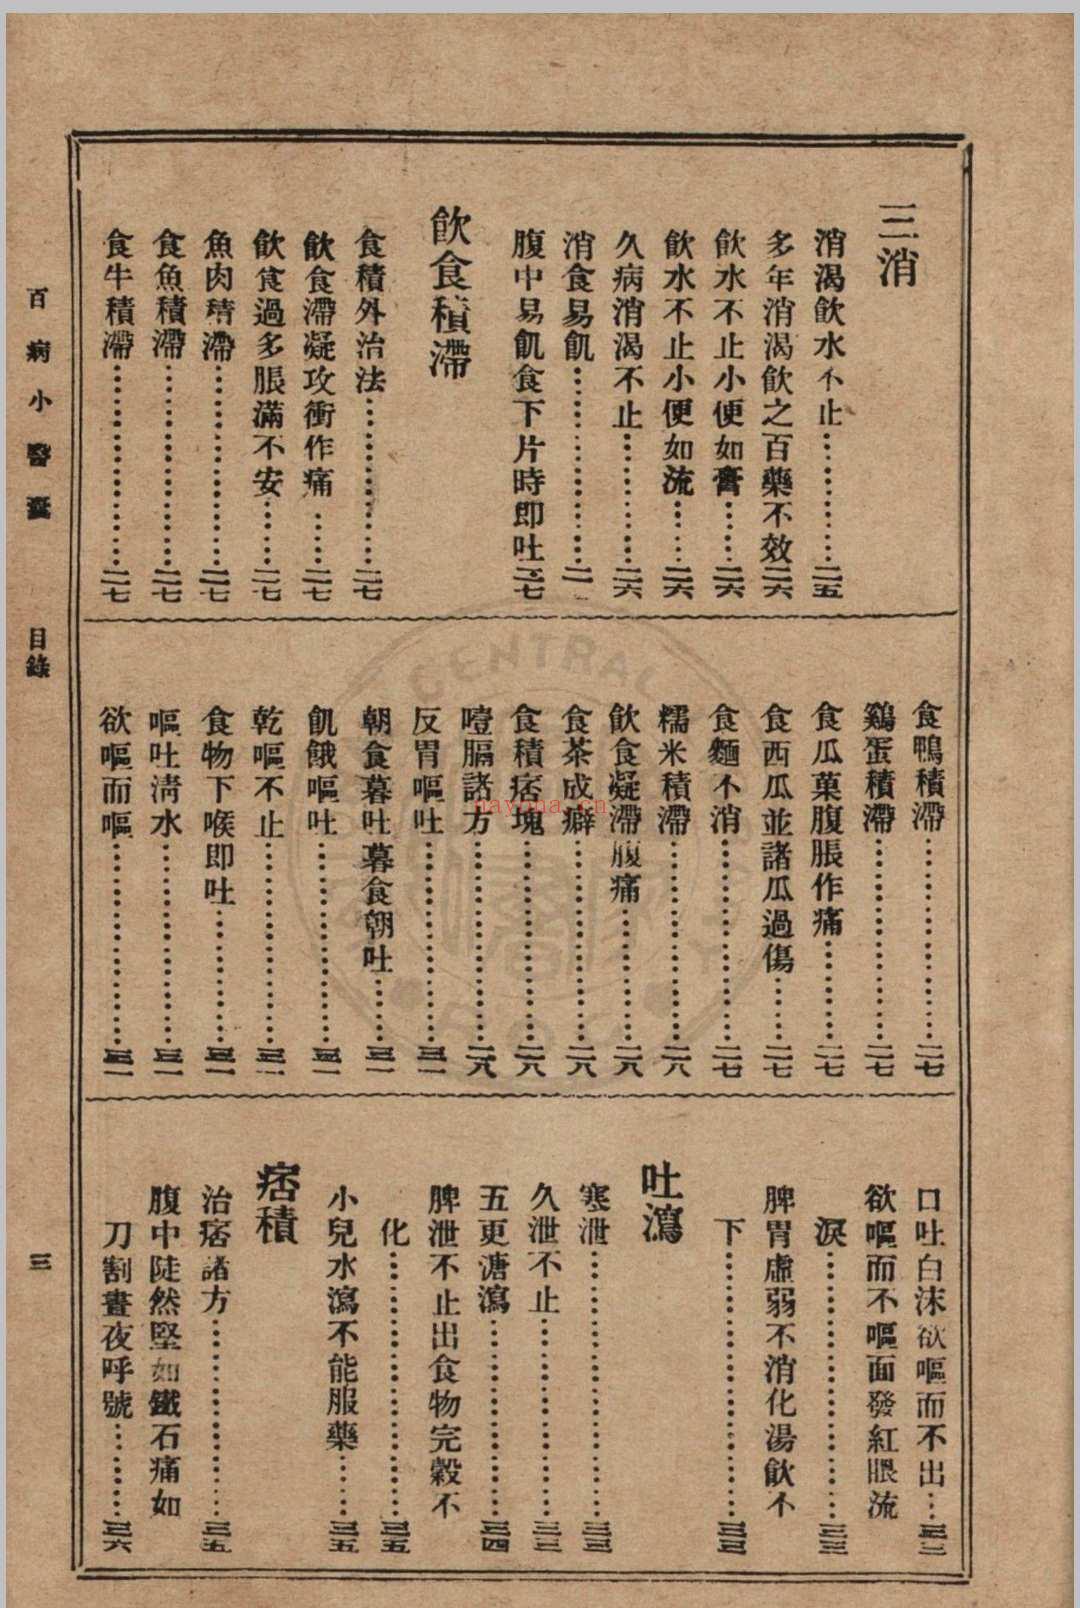 三消
消渴飲水不止⋯⋯二五
多年消渴飲之百藥不效⋯⋯二六
飲水不止小便如膏⋯⋯二六
飲水不止小便如流⋯⋯二六
久病消渴不止⋯⋯二六
消食易飢⋯⋯二
腹中易飢食下片時即吐⋯⋯二七
飲食積滯
食積外治法⋯⋯二七
飲食滯凝攻衝作痛⋯⋯二七
飲食過多脹滿不安⋯⋯二七
魚肉積滯⋯⋯二七
食魚積滯⋯⋯二七
食牛積滯⋯⋯二七
食鴨積滯⋯⋯二七
鷄蛋積滯⋯⋯二七
食瓜菓腹脹作痛⋯⋯二七
食西瓜並諸瓜過傷⋯⋯二七
食麵不消⋯⋯二七
糯米積滯⋯⋯二八
飲食凝滯腹痛⋯⋯二八
食茶成癖⋯⋯二八
食積痞塊⋯⋯二八
噎膈諸方⋯⋯二八
反胃嘔吐⋯⋯三一
朝食暮吐暮食朝吐⋯⋯三一
飢餓嘔吐⋯⋯三一
乾嘔不止⋯⋯三一
食物下喉即吐⋯⋯三一
嘔吐淸水⋯⋯三一
欲嘔而嘔⋯⋯三一
口吐白沫欲嘔而不出⋯⋯三二
欲嘔而不嘔面發紅眼流
淚⋯⋯三三
脾胃虛弱不消化湯飲不
下⋯⋯三三
吐瀉
寒泄⋯⋯三三
久泄不止⋯⋯三三
五更溏瀉⋯⋯三四
脾泄不止出食物完穀不
化⋯⋯三五
小兒水瀉不能服藥⋯⋯三五
痞積
治痞諸方⋯⋯三五
腹中陡然堅如鐵石痛如
刀割晝夜呼號⋯⋯三六
百病小醫囊 目錄 三
CENTRAL
nayona.cn